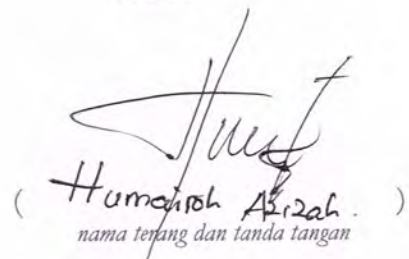 ( Humairoh Azizah. )
nama terang dan tanda tangan